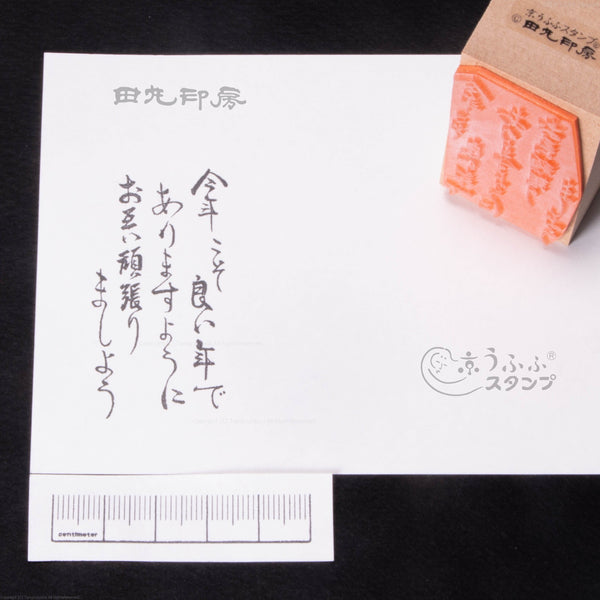 京うふふスタンプ®
©田丸印房
田丸印房
今年こそ 良い年で
ありますように
お互い頑張り
ましょう
京うふふ®
スタンプ
centimeter